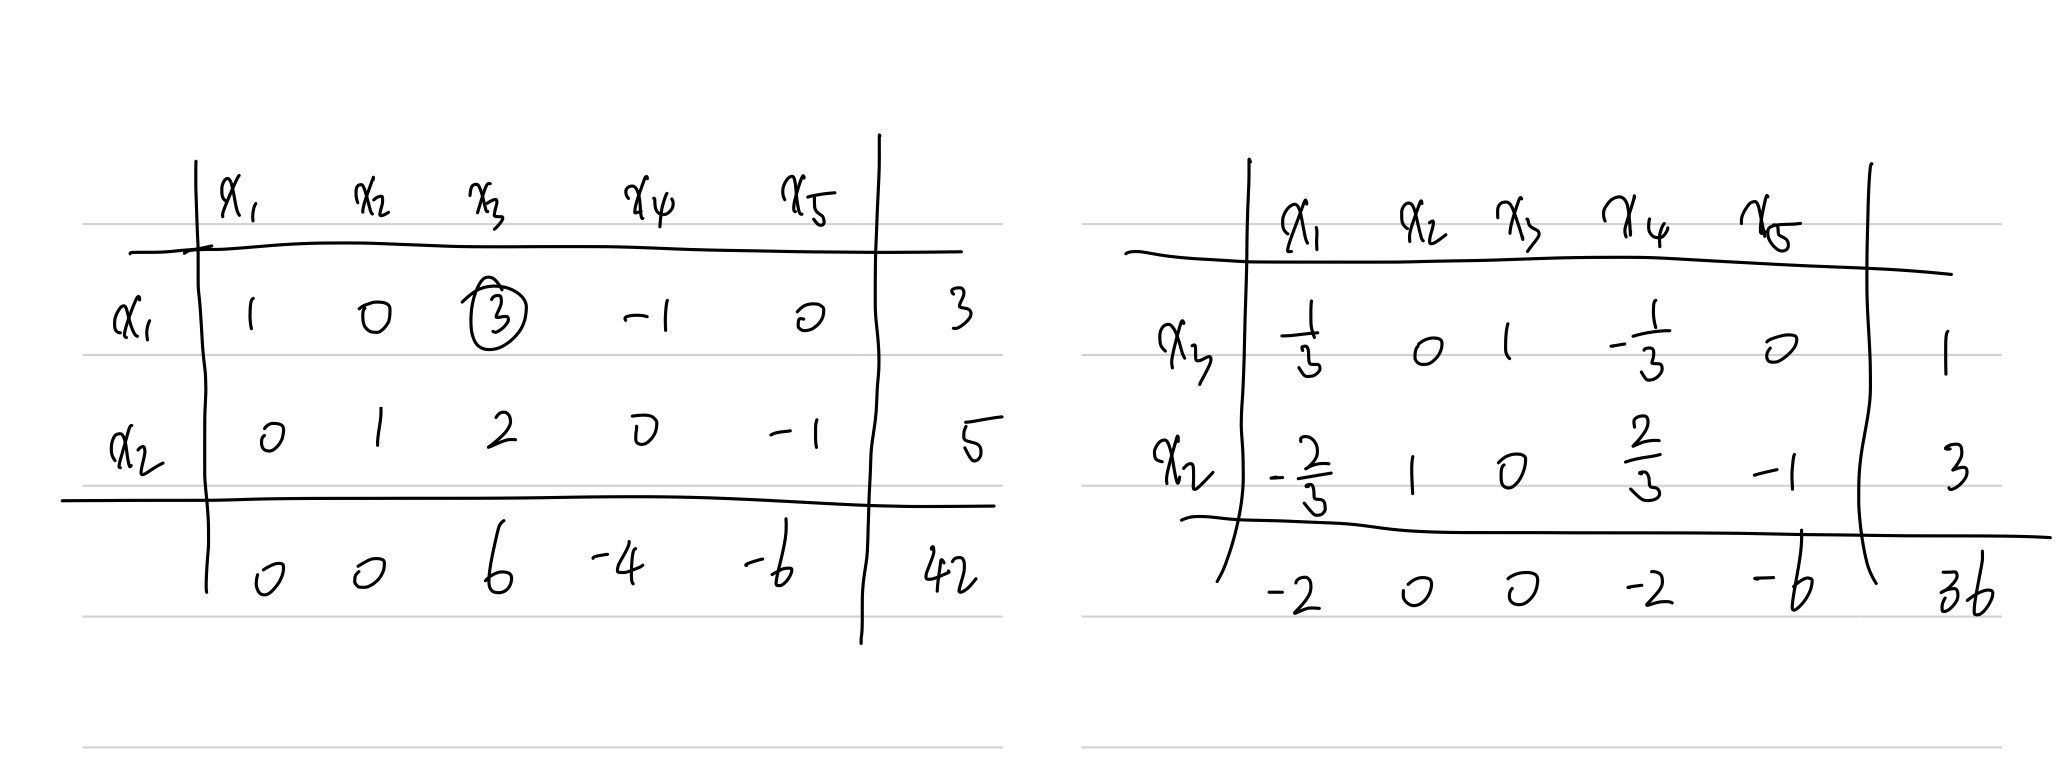 x₁ x₂ x₃ x₄ x₅
x₁ 1 0 3 -1 0 3
x₂ 0 1 2 0 -1 5
0 0 6 -4 -6 42
x₁ x₂ x₃ x₄ x₅
x₃ 1/3 0 1 -1/3 0 1
x₂ -2/3 1 0 2/3 -1 3
-2 0 0 -2 -6 36